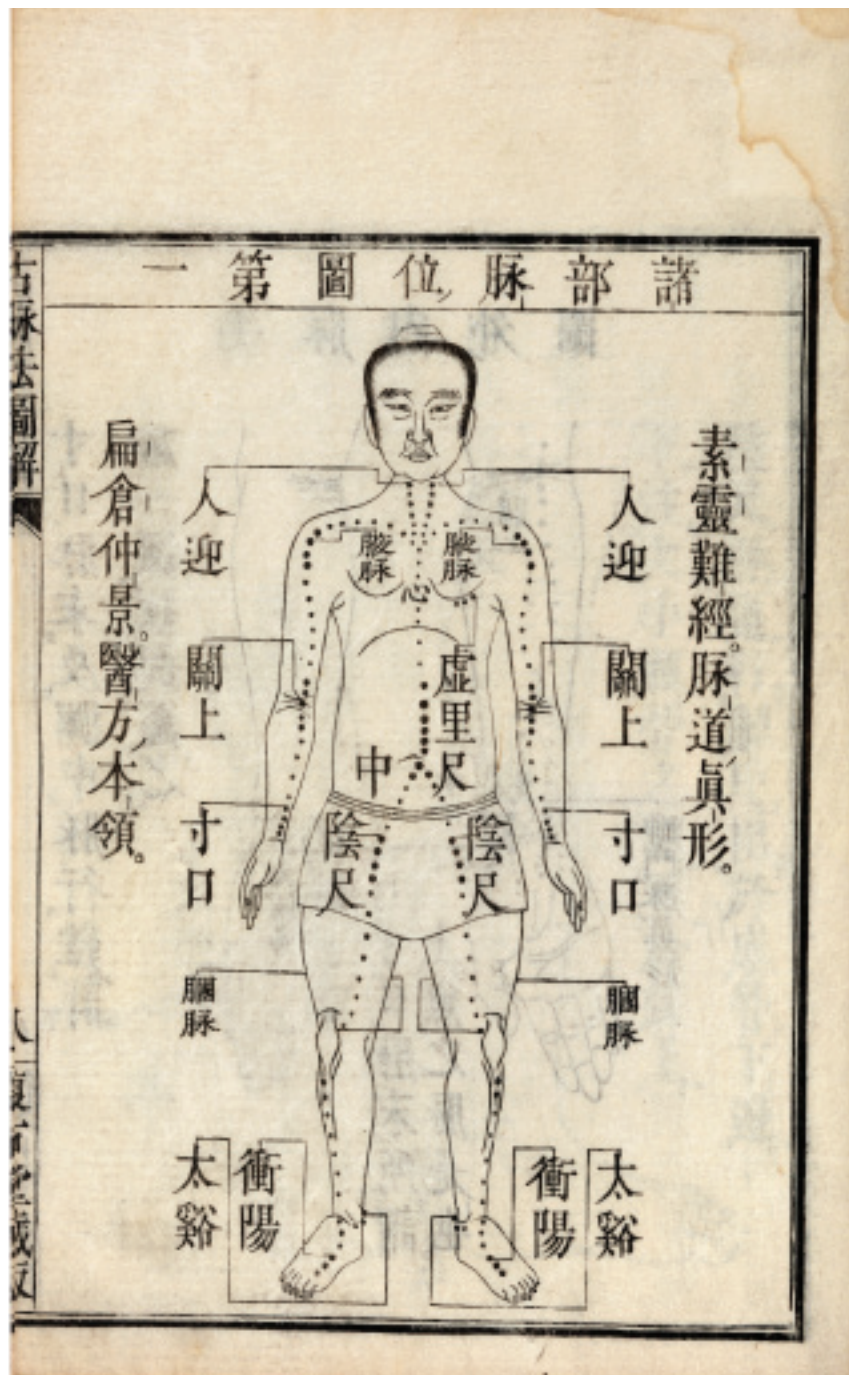 諸部脉位圖第一
素靈難經。脉道眞形。
人迎
關上
寸口
膕脉
太谿
衝陽
腋脉
腋脉
心
虚里
尺
中
陰尺
陰尺
人迎
關上
寸口
膕脉
衝陽
太谿
扁倉仲景。醫方本領。
古脉法圖解